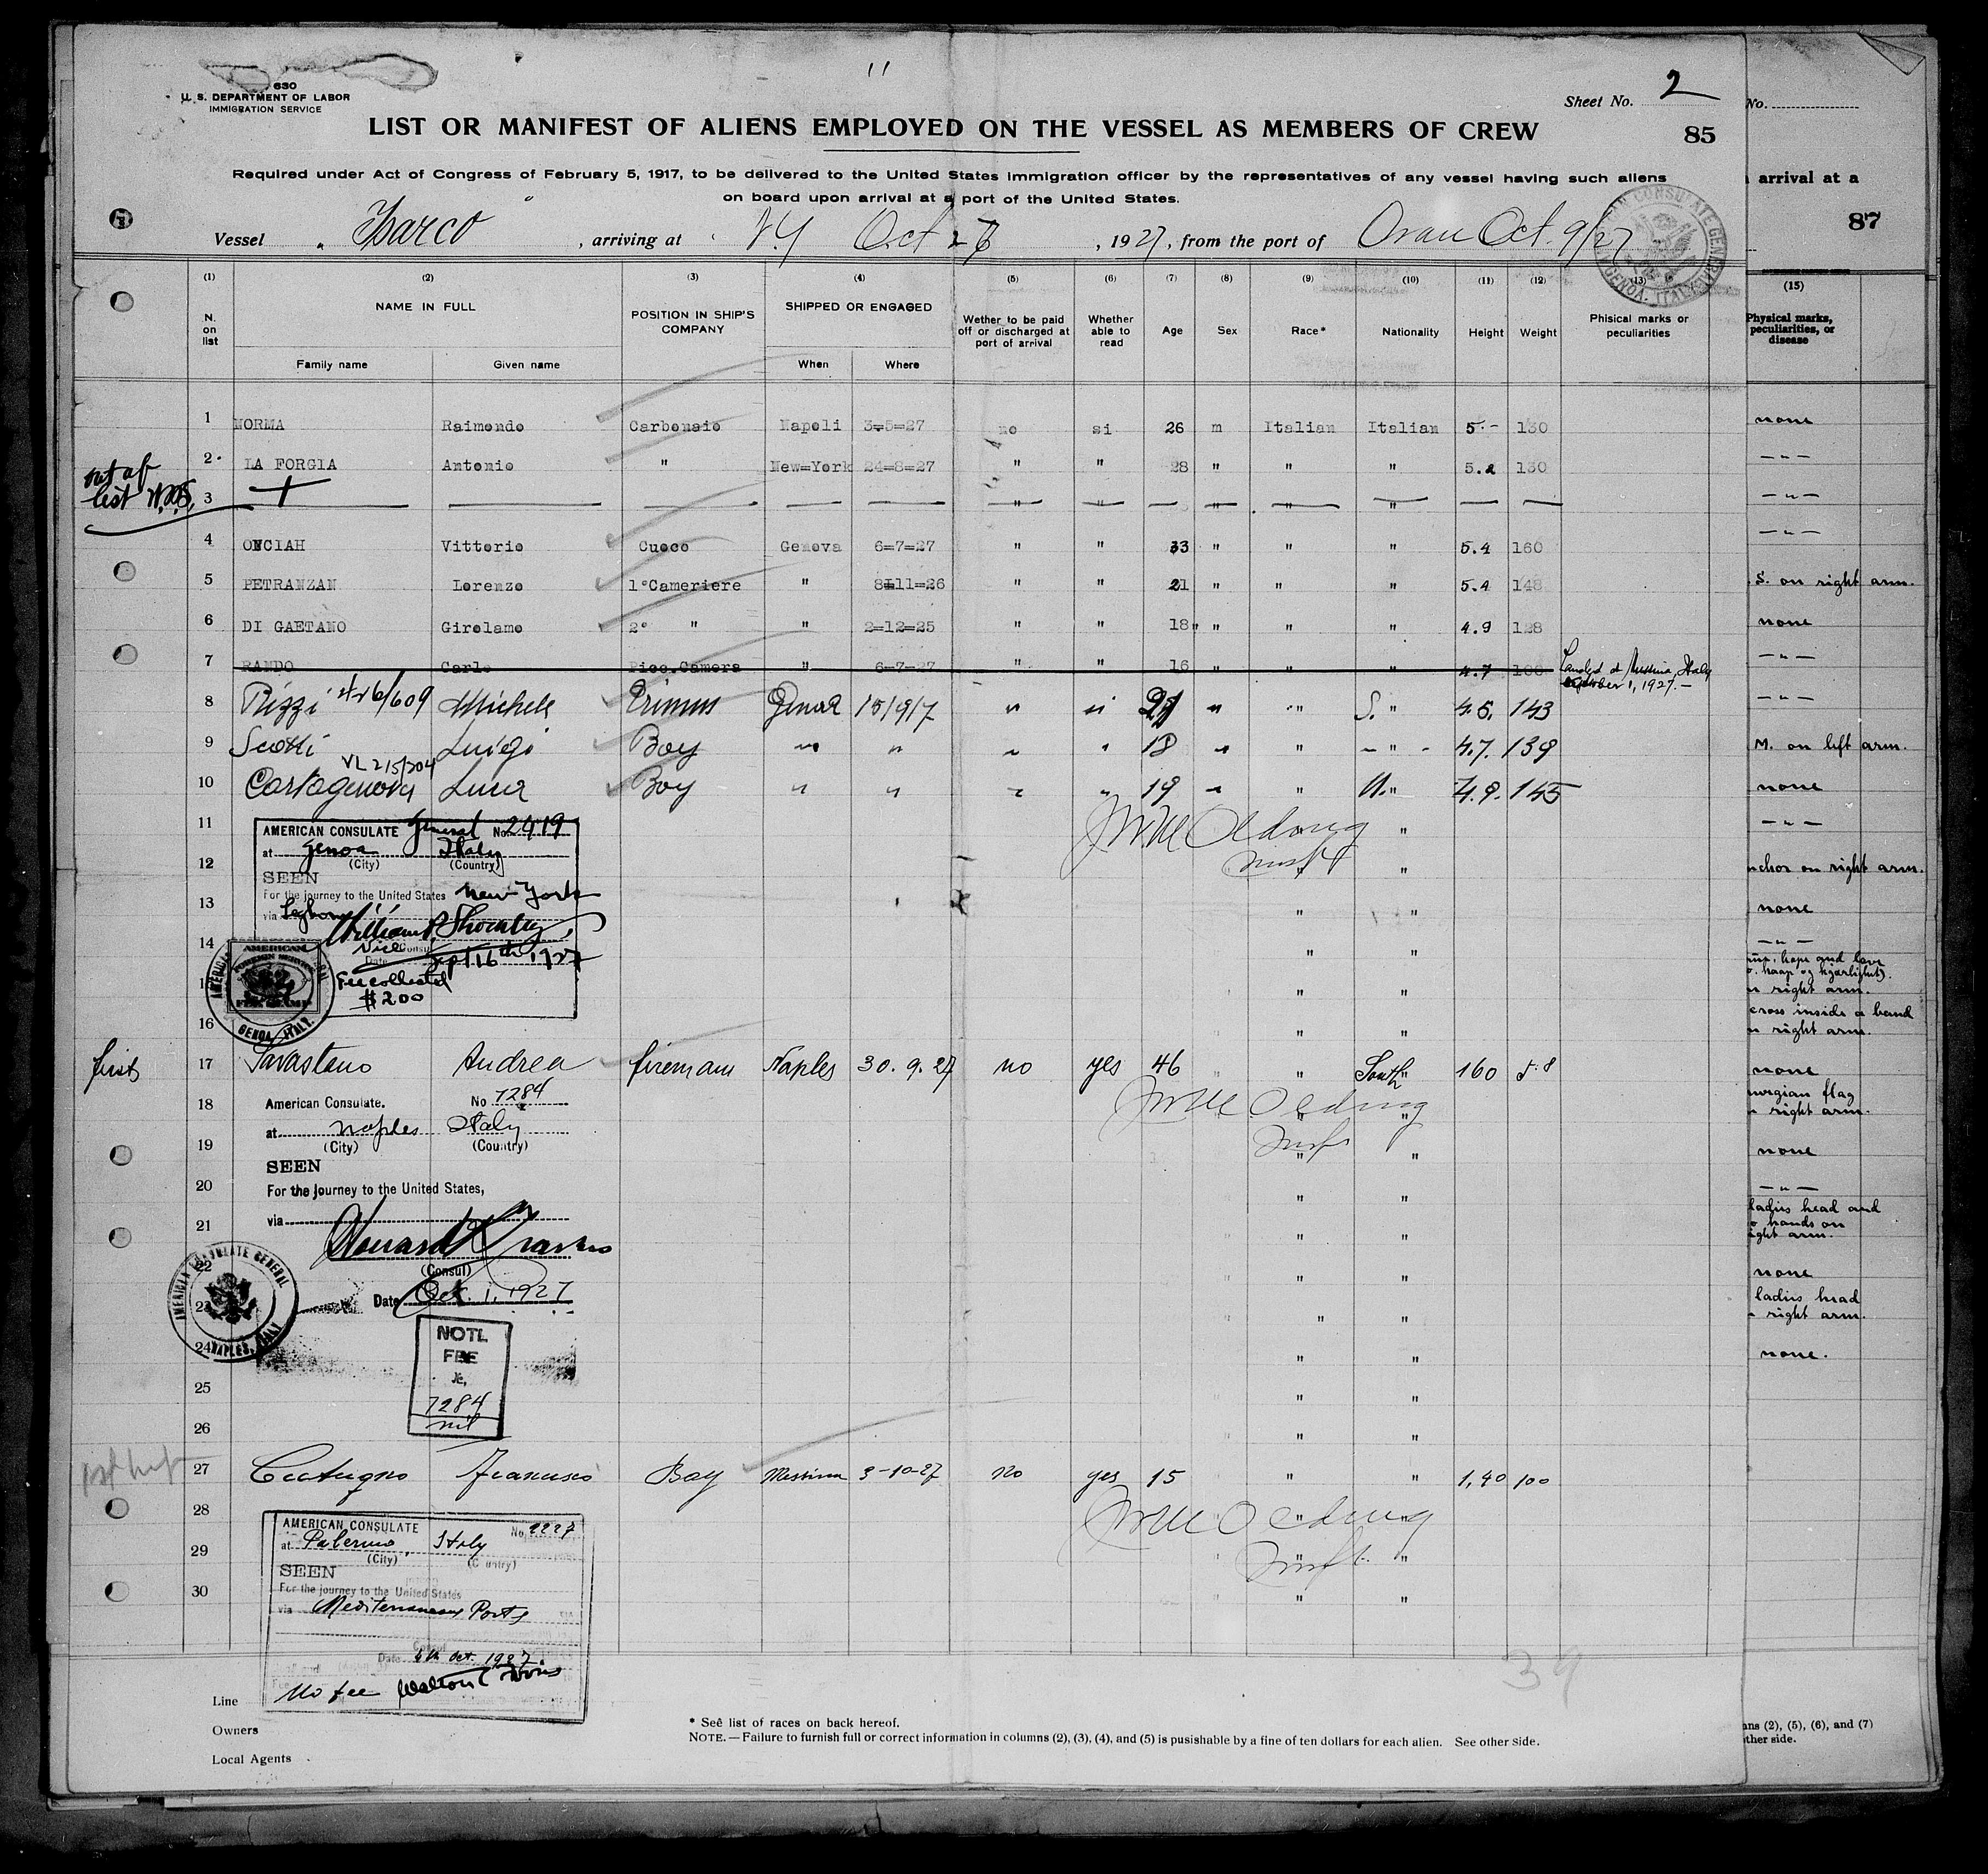 630
U. S. DEPARTMENT OF LABOR
IMMIGRATION SERVICE
11
Sheet No. 2
No.
LIST OR MANIFEST OF ALIENS EMPLOYED ON THE VESSEL AS MEMBERS OF CREW
85
Required under Act of Congress of February 5, 1917, to be delivered to the United States Immigration officer by the representatives of any vessel having such aliens
on board upon arrival at a port of the United States.
arrival at a
87
Vessel Isarco , arriving at N.Y Oct 26 , 1927, from the port of Oran Oct. 9/27
AMERICAN CONSULATE GENERAL GENOA, ITALY
(1) (2) (3) (4) (5) (6) (7) (8) (9) (10) (11) (12) (13) (15)
N. on list NAME IN FULL POSITION IN SHIP'S COMPANY SHIPPED OR ENGAGED Wether to be paid off or discharged at port of arrival Whether able to read Age Sex Race* Nationality Height Weight Phisical marks or peculiarities Physical marks, peculiarities, or disease
Family name Given name When Where
1 NORMA Raimondo Carbonaio Napoli 3=5=27 no si 26 m Italian Italian 5.- 130 none
2 LA FORGIA Antonio " New=York 24=8=27 " " 28 " " " 5.2 130 — " —
not of list
3 " " " " " — " —
4 ONCIAH Vittorio Cuoco Genova 6=7=27 " " 33 " " " 5.4 160 — " —
5 PETRANZAN Lorenzo 1°Cameriere " 8=11=26 " " 21 " " " 5.4 148 S. on right arm.
6 DI GAETANO Girolamo 2° " " 2=12=25 " " 18 " " " 4.9 128 none
7 RANDO Carlo Picc.Camera " 6-7-27 " " 16 " " " 4.7 100 Landed at Messina, Italy October 1, 1927.- — " —
8 Rizzi Michele Genoa 15/9/7 " " " " S. " 4.5. 143 — " —
9 Scotti Luigi Boy " " " " 18 " " — " — 4.7. 139 M. on left arm.
VL 215/204
10 Cartagenova Luca Boy " " " " 19 " " " 4.9. 145 none
11 " — " —
12 " anchor on right arm.
13 " " none
14 " " — " —
15 " "
16 " "
AMERICAN CONSULATE General No. 2419
at Genoa Italy
(City) (Country)
SEEN
For the journey to the United States New York
via Leghorn
Vice Consul
Date Sept 16th 1927
Fee collected
$2.00
AMERICAN FOREIGN SERVICE FEE STAMP
GENOA, ITALY.
hope and love
right arm.
cross inside a band
right arm.
first 17 Savastano Andrea fireman Naples 30. 9. 27 no yes 46 " " South " 160 5.8 none
18 " "
19 " "
20 " "
21 " "
22 " "
23 " "
24 " "
American Consulate. No 7284
at Naples Italy
(City) (Country)
SEEN
For the Journey to the United States,
via
(Consul)
Date Oct. 1, 1927
AMERICAN CONSULATE GENERAL NAPLES, ITALY
norwegian flag
right arm.
none
— " —
ladies head and
hands on
right arm.
none
ladies head
right arm.
none.
FEE
7284
nil
25 " "
26 " "
27 Cutugno Francesco Boy Messina 3-10-27 no yes 15 " " 1,40 100
28 " "
29 " "
30 " "
AMERICAN CONSULATE No. 2227
at Palermo, Italy
(City) (Country)
SEEN
For the journey to the United States
via Mediterranean Ports
Consul
Date 4th Oct. 1927
No fee
39
Line
Owners
Local Agents
* Seê list of races on back hereof.
NOTE. — Failure to furnish full or correct information in columns (2), (3), (4), and (5) is pusishable by a fine of ten dollars for each alien. See other side.
(2), (5), (6), and (7)
other side.